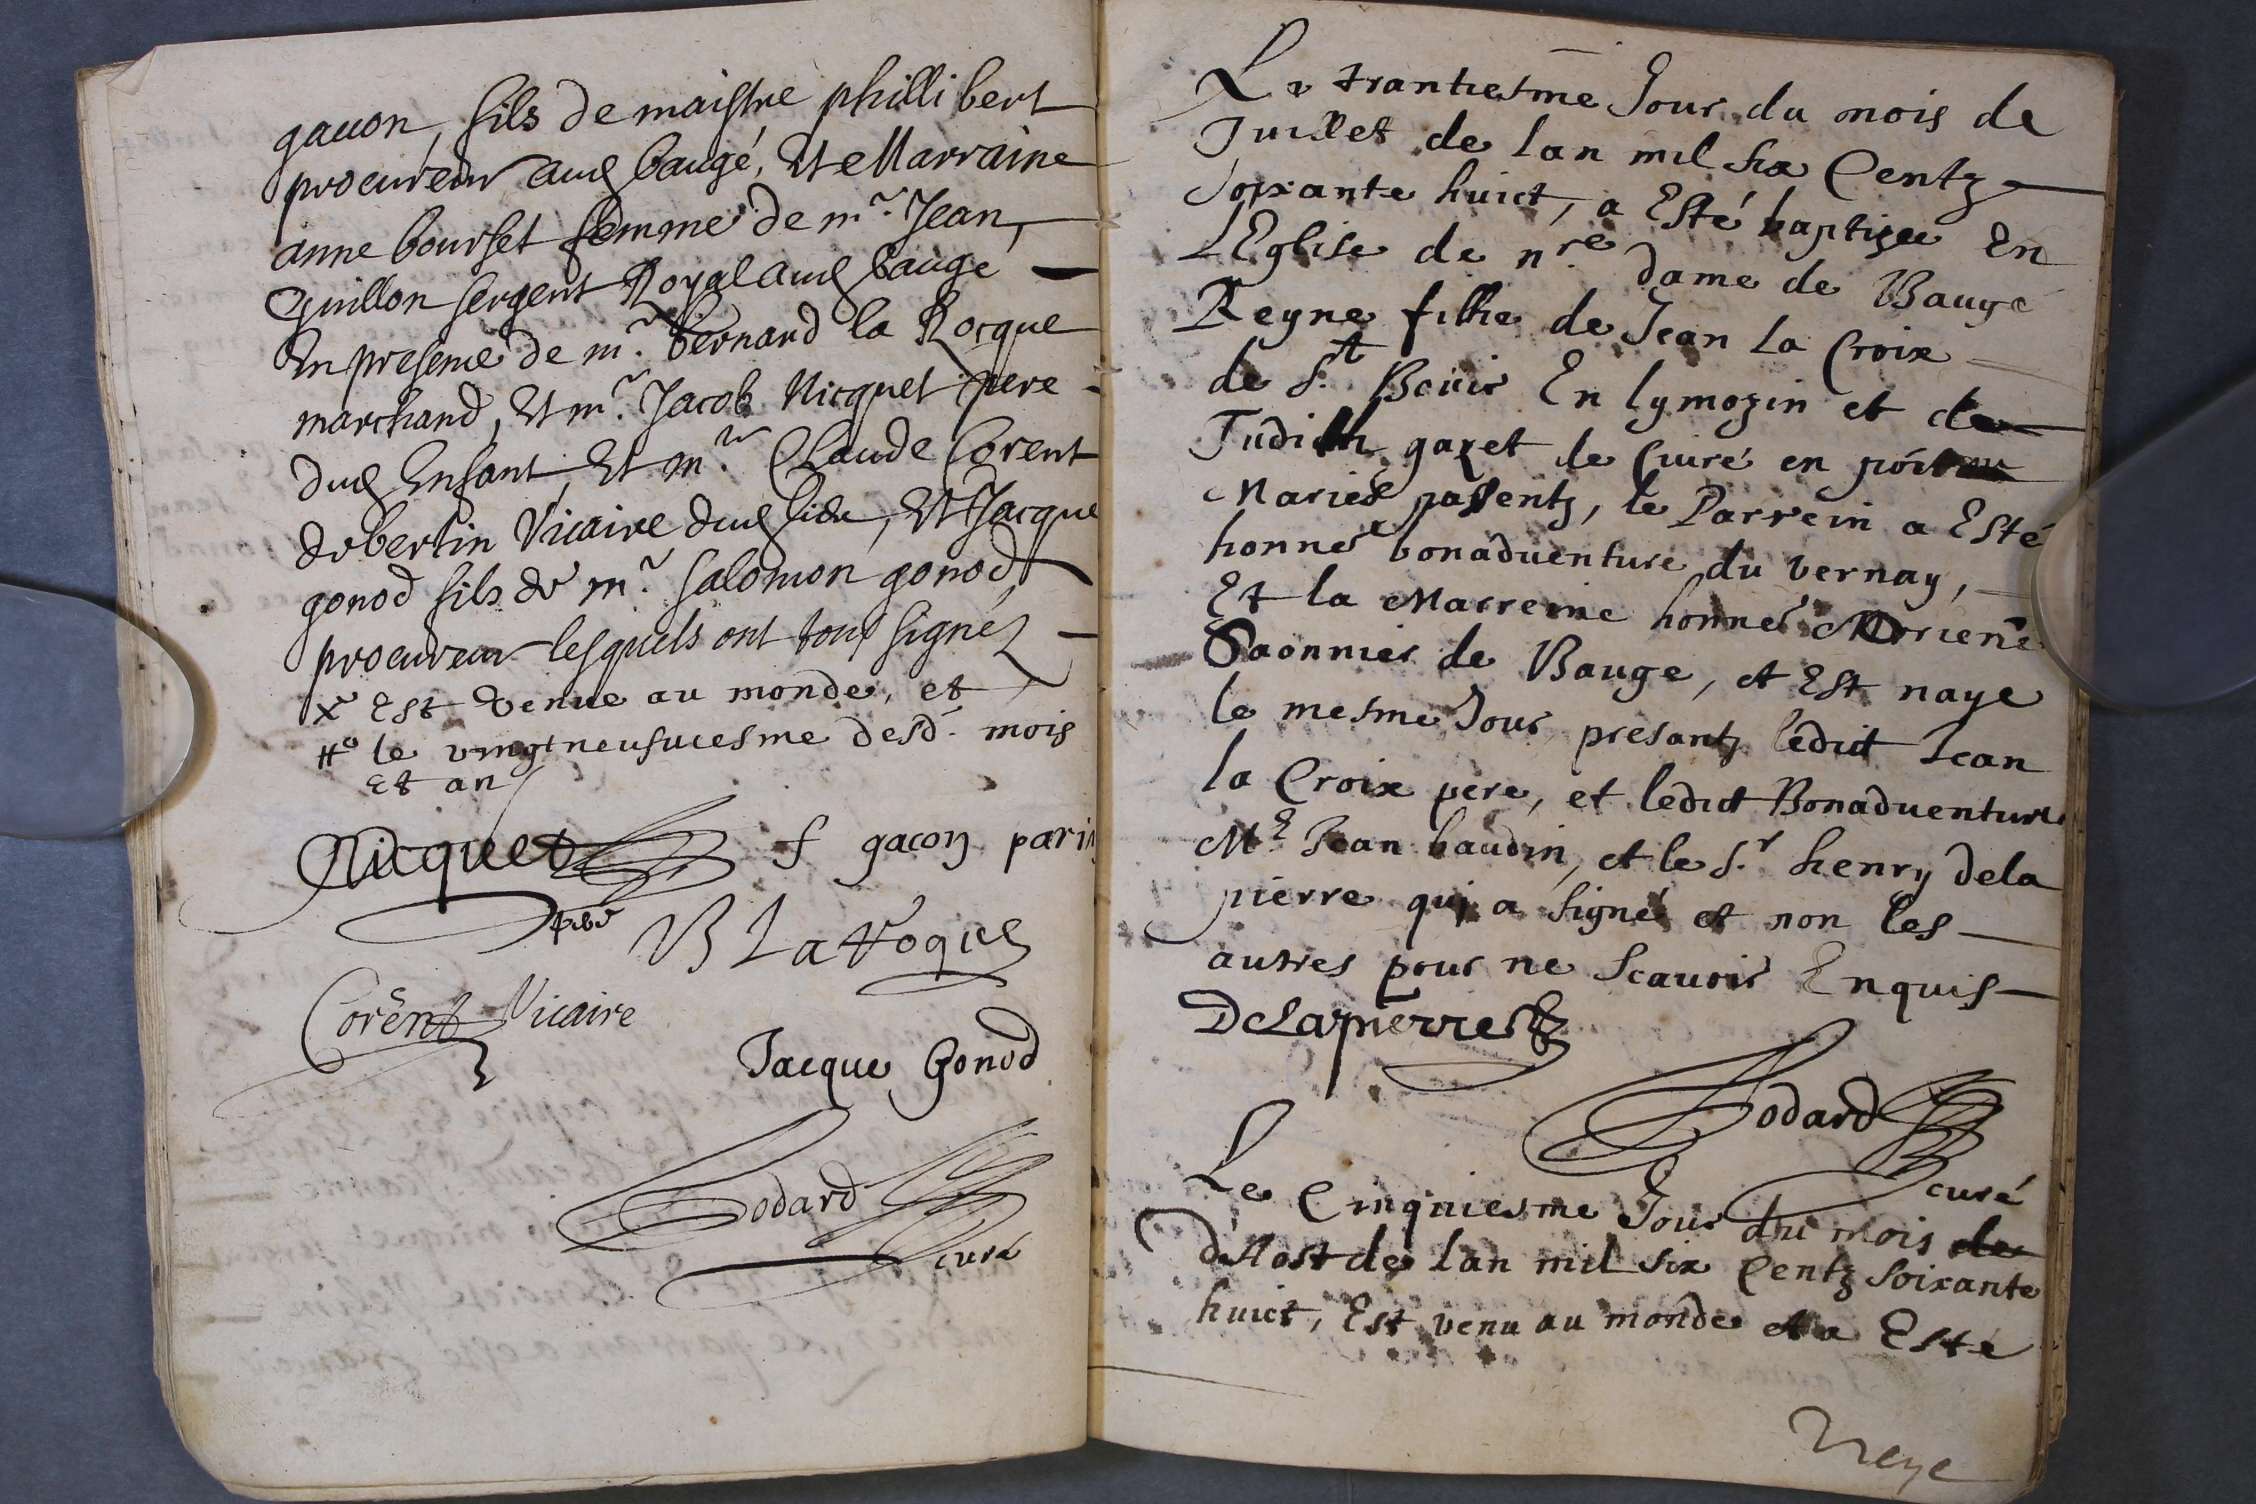 gacon, fils de maistre phillibert
procureur aud baugé, Et Marraine
anne bourset femme de mr. Jean,
Guillon sergent Royal aud baugé
En presence de mr. bernard la Rocque
marchand, Et mr. Jacob Nicquet pere
dud Enfant, Et mr. Claude Corent
debertin Vicaire dud lieu, Et Jacque
gonod fils de mr. salomon gonod,
procureur lesquels ont tous signéz
x Est venue au monde, et
# le vingtneufviesme desd. mois
Et an
Nicquet f gacon parin
pere B La roque
Corent Vicaire
Jacque Gonod
Godard
curé
Le trantiesme Jour du mois de
Juillet de lan mil six Centz
soixante huict, a Esté baptizee En
LEglise de nre. dame de Baugé
Reyne fillie de Jean la Croix
de St. En lymozin et de
Judith gazet de Civré en poitou
Mariés parentz, le Parrein a Esté
honner bonaduenture du vernay,
Et la Marreine honner
de Bauge, et Est naye
le mesme Jour, presantz ledict Jean
la Croix pere, et ledict Bonaduenture
Me. Jean baudin, et le Sr. henry dela
pierre qui a signé et non les
autres pour ne scauoir Enquis
DeLapierre
Godard
curé
Le Cinquiesme Jour du mois de
d'Aost de lan mil six Centz soixante
huict, Est venu au monde et a Esté